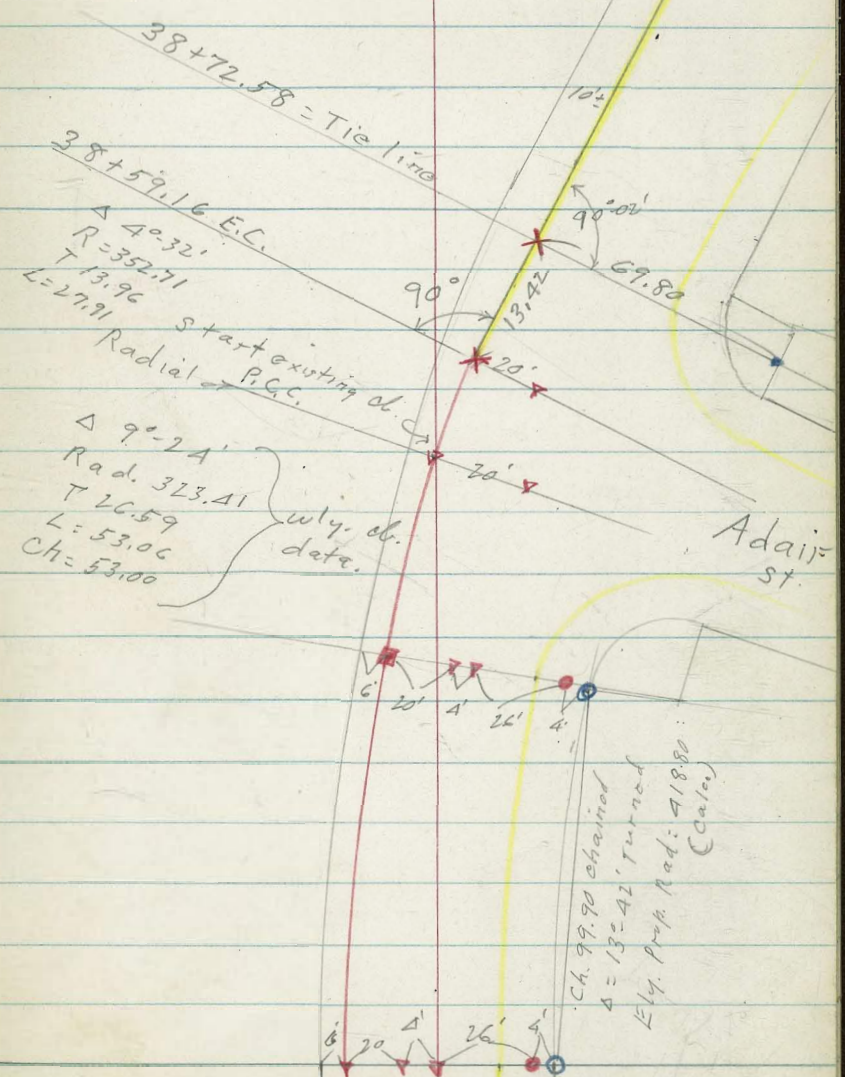 38+72.58 = Tie line
10'±
38+59.16 E.C.
90°-02'
Δ 4°-32'
R=352.71
T 13.96
L=27.91
69.80
90°
13.42
start existing cb.
Radial P.C.C.
20'
20'
Δ 9°-24'
Rad. 323.41
T 26.59
L=53.06
Ch=53.00
wly. cb.
data.
Adair
St.
6' 20' 4' 26' 4'
Ch. 99.90 chained
Δ = 13°-42' Turned
Ely. Prop. Rad = 418.80
(Calc.)
6' 20 4' 26' 4'